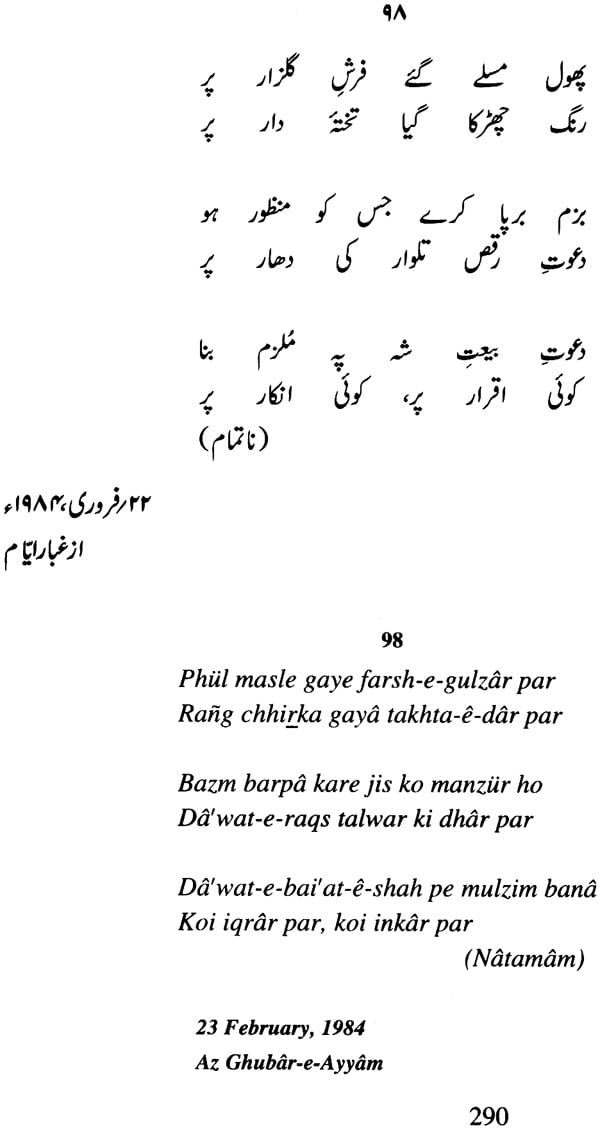 ۹۸
پھول مسلے گئے فرشِ گلزار پر
رنگ چھڑکا گیا تختۂ دار پر
بزم برپا کرے جس کو منظور ہو
دعوتِ رقص تلوار کی دھار پر
دعوتِ بیعتِ شہ پہ مُلزم بنا
کوئی اقرار پر، کوئی انکار پر
(ناتمام)
۲۲؍فروری،۱۹۸۴ء
از غبارِ ایّام
98
Phül masle gaye farsh-e-gulzâr par
Rañg chhirka gayâ takhta-ê-dâr par
Bazm barpâ kare jis ko manzür ho
Dâ'wat-e-raqs talwar ki dhâr par
Dâ'wat-e-bai'at-ê-shah pe mulzim banâ
Koi iqrâr par, koi inkâr par
(Nâtamâm)
23 February, 1984
Az Ghubâr-e-Ayyâm
290